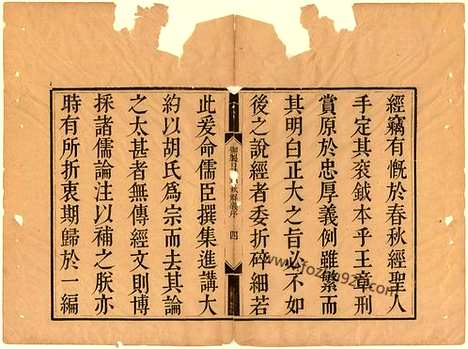 經竊有慨於春秋經聖人
手定其袞鉞本乎王章刑
賞原於忠厚義例雖繁而
其明白正大之旨必不如
後之說經者委折碎細若
御製日
秋解義序
四
此爰命儒臣撰集進講大
約以胡氏爲宗而去其論
之太甚者無傳經文則博
採諸儒論注以補之朕亦
時有所折衷期歸於一編